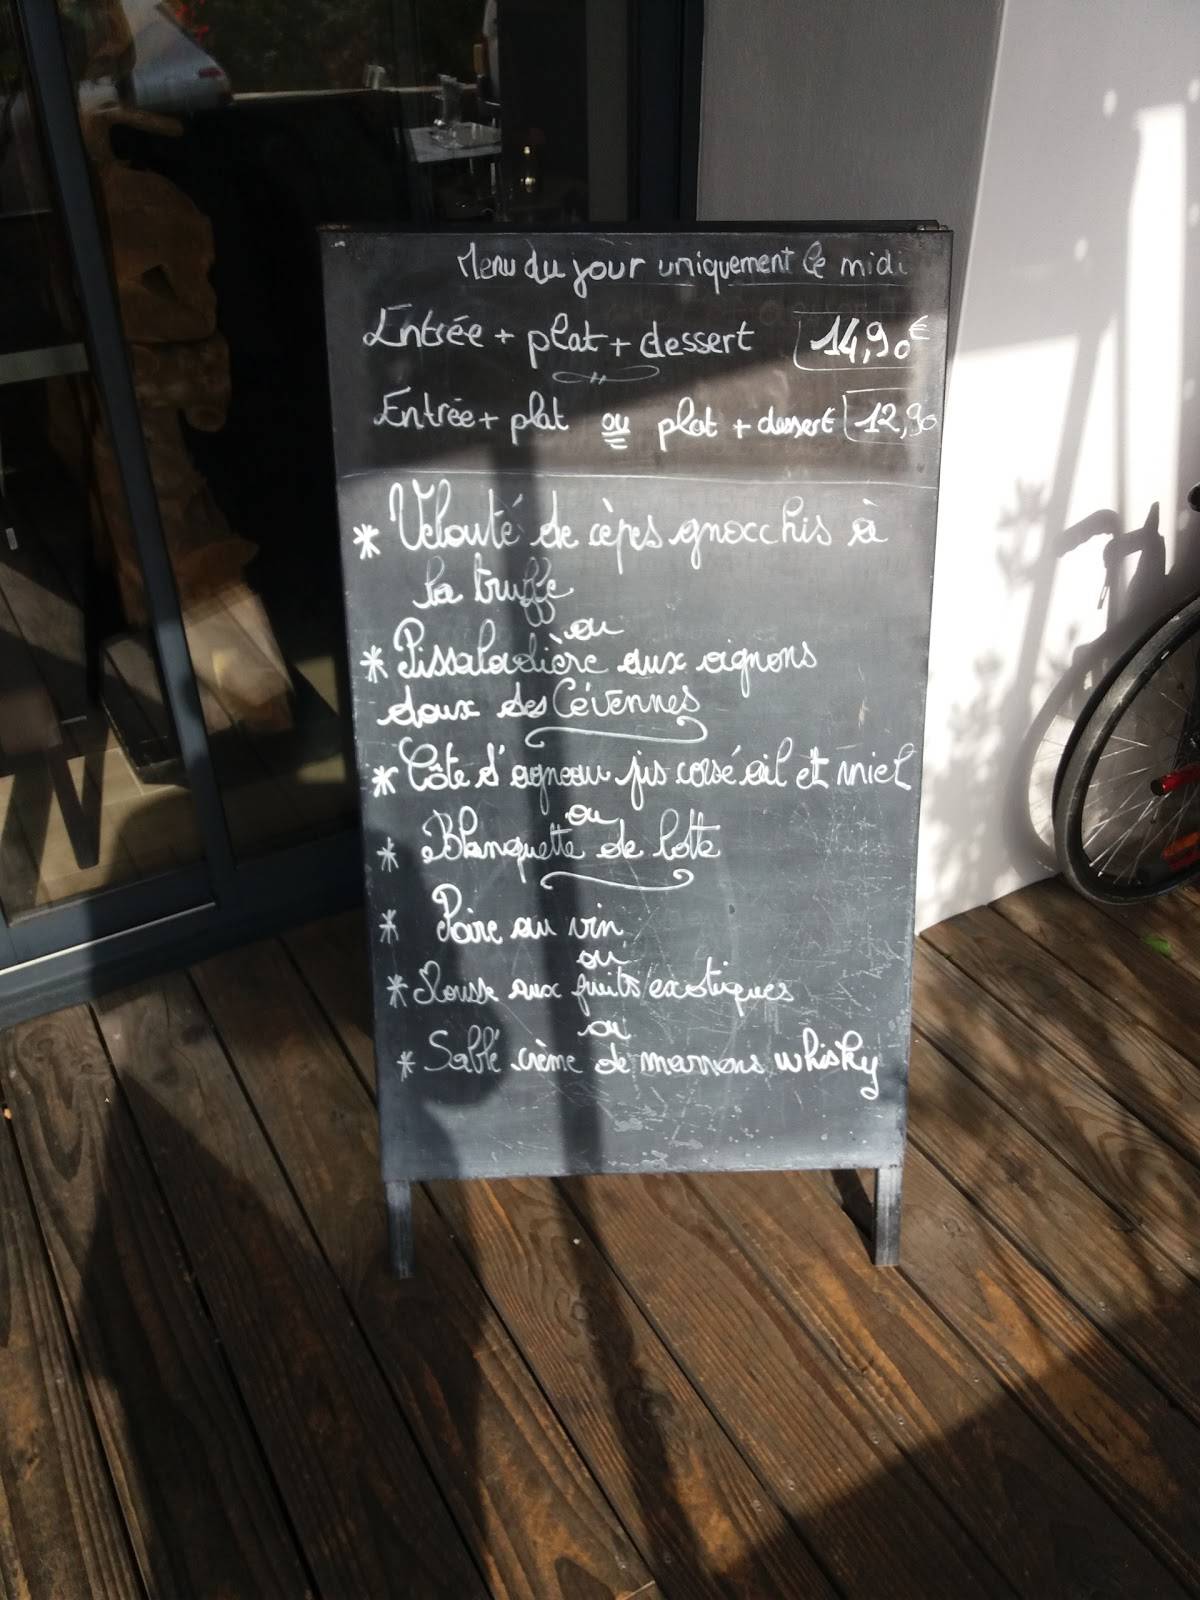 Menu du jour uniquement le midi
Entrée + plat + dessert 14,90€
Entrée + plat ou plat + dessert 12,90
* Velouté de cèpes gnocchis à
la truffe
ou
* Pissaladière aux oignons
doux des Cévennes
* Côte d'agneau jus corsé ail et miel
ou
* Blanquette de lotte
* Poire au vin
ou
* Mousse aux fruits exotiques
ou
* Sablé crème de marrons whisky